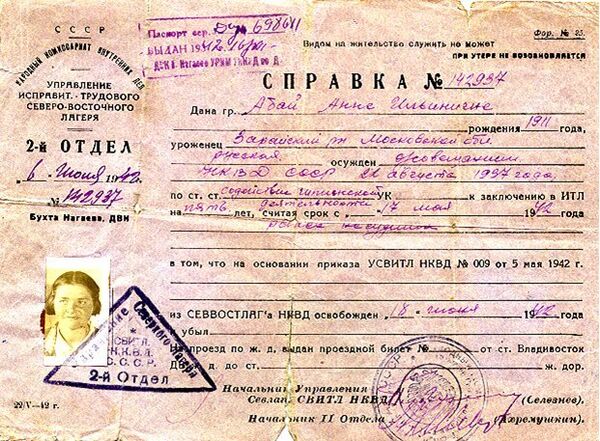 СССР
НАРОДНЫЙ КОМИССАРИАТ ВНУТРЕННИХ ДЕЛ
УПРАВЛЕНИЕ
ИСПРАВИТ.-ТРУДОВОГО
СЕВЕРО-ВОСТОЧНОГО
ЛАГЕРЯ
2-й ОТДЕЛ
„6" июня 1942 г.
№ 142937
БУХТА НАГАЕВА, ДВК
Паспорт сер.
ВЫДАН
Фор. № 25.
Видом на жительство служить не может
ПРИ УТЕРЕ НЕ ВОЗОБНОВЛЯЕТСЯ
СПРАВКА № 142937
Дана гр. Абай Анне Ильиничне
рождения 1911 года,
уроженец Зарайский р-н Московской обл
русская осужден особсовещанием
НКВД СССР 21 августа 1937 года,
по ст. ст. содействие шпионской УК к заключению в ИТЛ
на пять деятельности лет, считая срок с 17 мая 1942 года
в том, что на основании приказа УСВИТЛ НКВД № 009 от 5 мая 1942 г.
из СЕВВОСТЛАГ'а НКВД освобожден 18 июня 1942 года
и убыл
На проезд по ж. д. выдан проездной билет № от ст. Владивосток
ж. д. до ст. ж. дор.
Начальник Управления
Севлаг. СВИТЛ НКВД (Селезнев).
Начальник II Отдела (Керемушкин).
Управление Северного лагеря
СВИТЛ
Н.К.В.Д.
С.С.С.Р.
2-й Отдел
22/V-42 г.